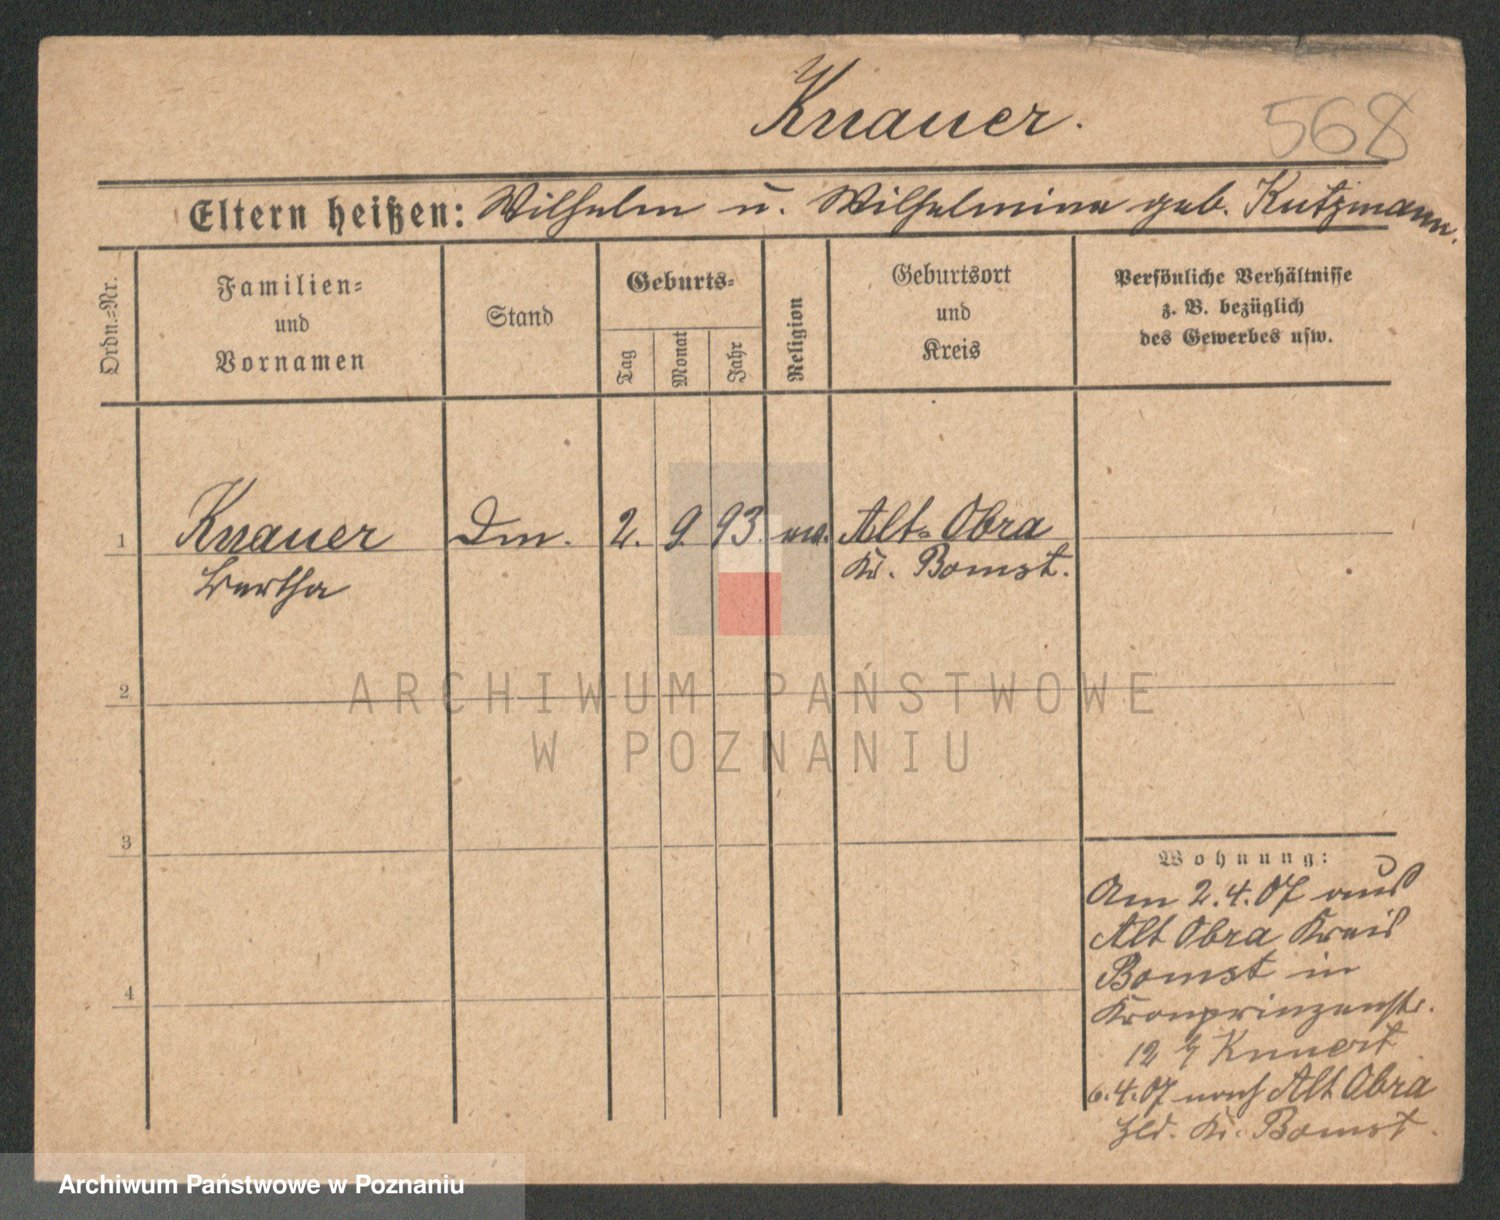 Knauer.
568
Eltern heißen: Wilhelm u. Wilhelmine geb. Kutzmann.
Ordn.=Nr.
Familien=
und
Vornamen
Stand
Geburts=
Tag
Monat
Jahr
Religion
Geburtsort
und
Kreis
Persönliche Verhältnisse
z. B. bezüglich
des Gewerbes usw.
1 Knauer Dm. 2. 9. 93. ev. Alt=Obra
Bertha Kr. Bomst.
2
3
4
Wohnung:
Am 2.4.07 aus
Alt Obra Kreis
Bomst in
Kronprinzenstr.
12 Kunert
6.4.07 nach Alt Obra
Kr. Bomst.
ARCHIWUM PAŃSTWOWE
W POZNANIU
Archiwum Państwowe w Poznaniu